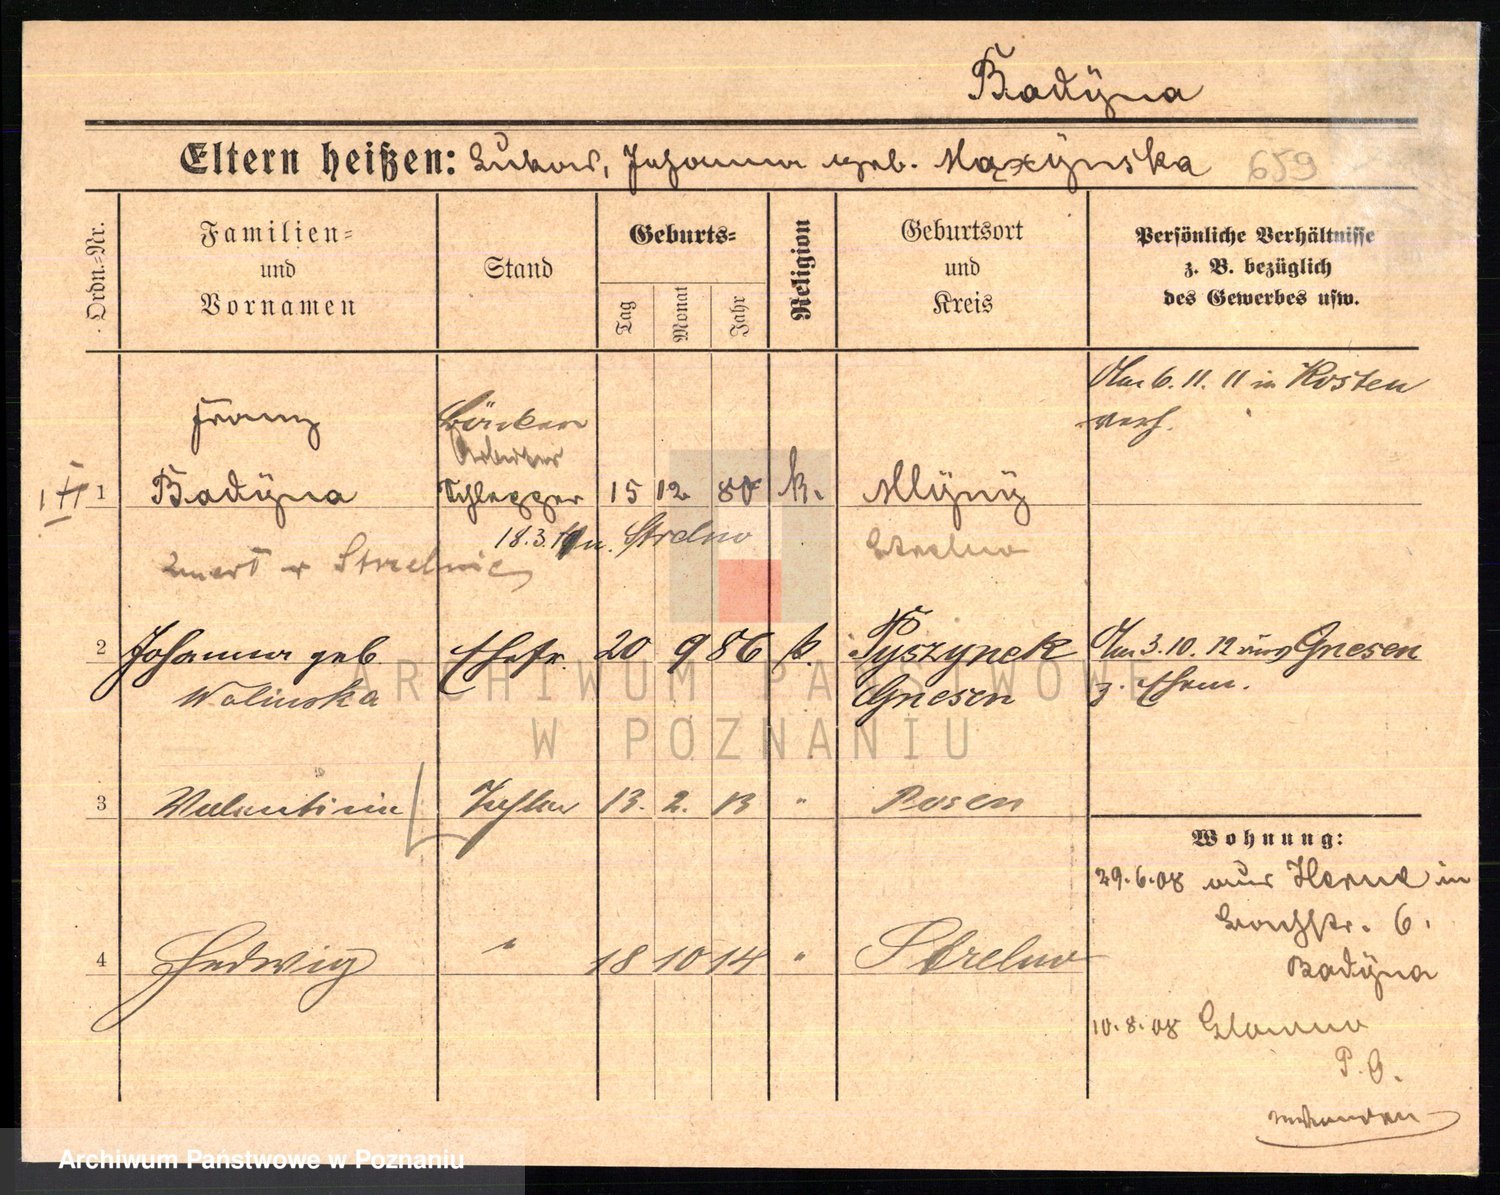 Badÿna
Eltern heißen: Lukas, Johanna geb. Mąxÿnska 659
Ordn.-Nr.
Familien- und Vornamen
Stand
Geburts-
Tag
Monat
Jahr
Religion
Geburtsort und Kreis
Persönliche Verhältnisse
z. B. bezüglich
des Gewerbes usw.
Am 6. 11. 11 in Kosten
verh.
Franz
Bäcker
Arbeiter
1 Badÿna 15 12. 80 k. Mlÿnÿ
18.3. n. Strelno
Strelno
2 Johanna geb. Ehefr. 20 9 86 k. Pyszynek Am 3.10.12 aus Gnesen
Wolinska Gnesen z. Ehem.
3 Valentine Tochter 13. 2. 13 " Posen
Wohnung:
29.6.08 aus Herne in
6.
Badÿna
4 Hedwig " 18 10 14 " Strelno
10.8.08 Glowno
P. O.
ARCHIWUM PAŃSTWOWE
W POZNANIU
Archiwum Państwowe w Poznaniu